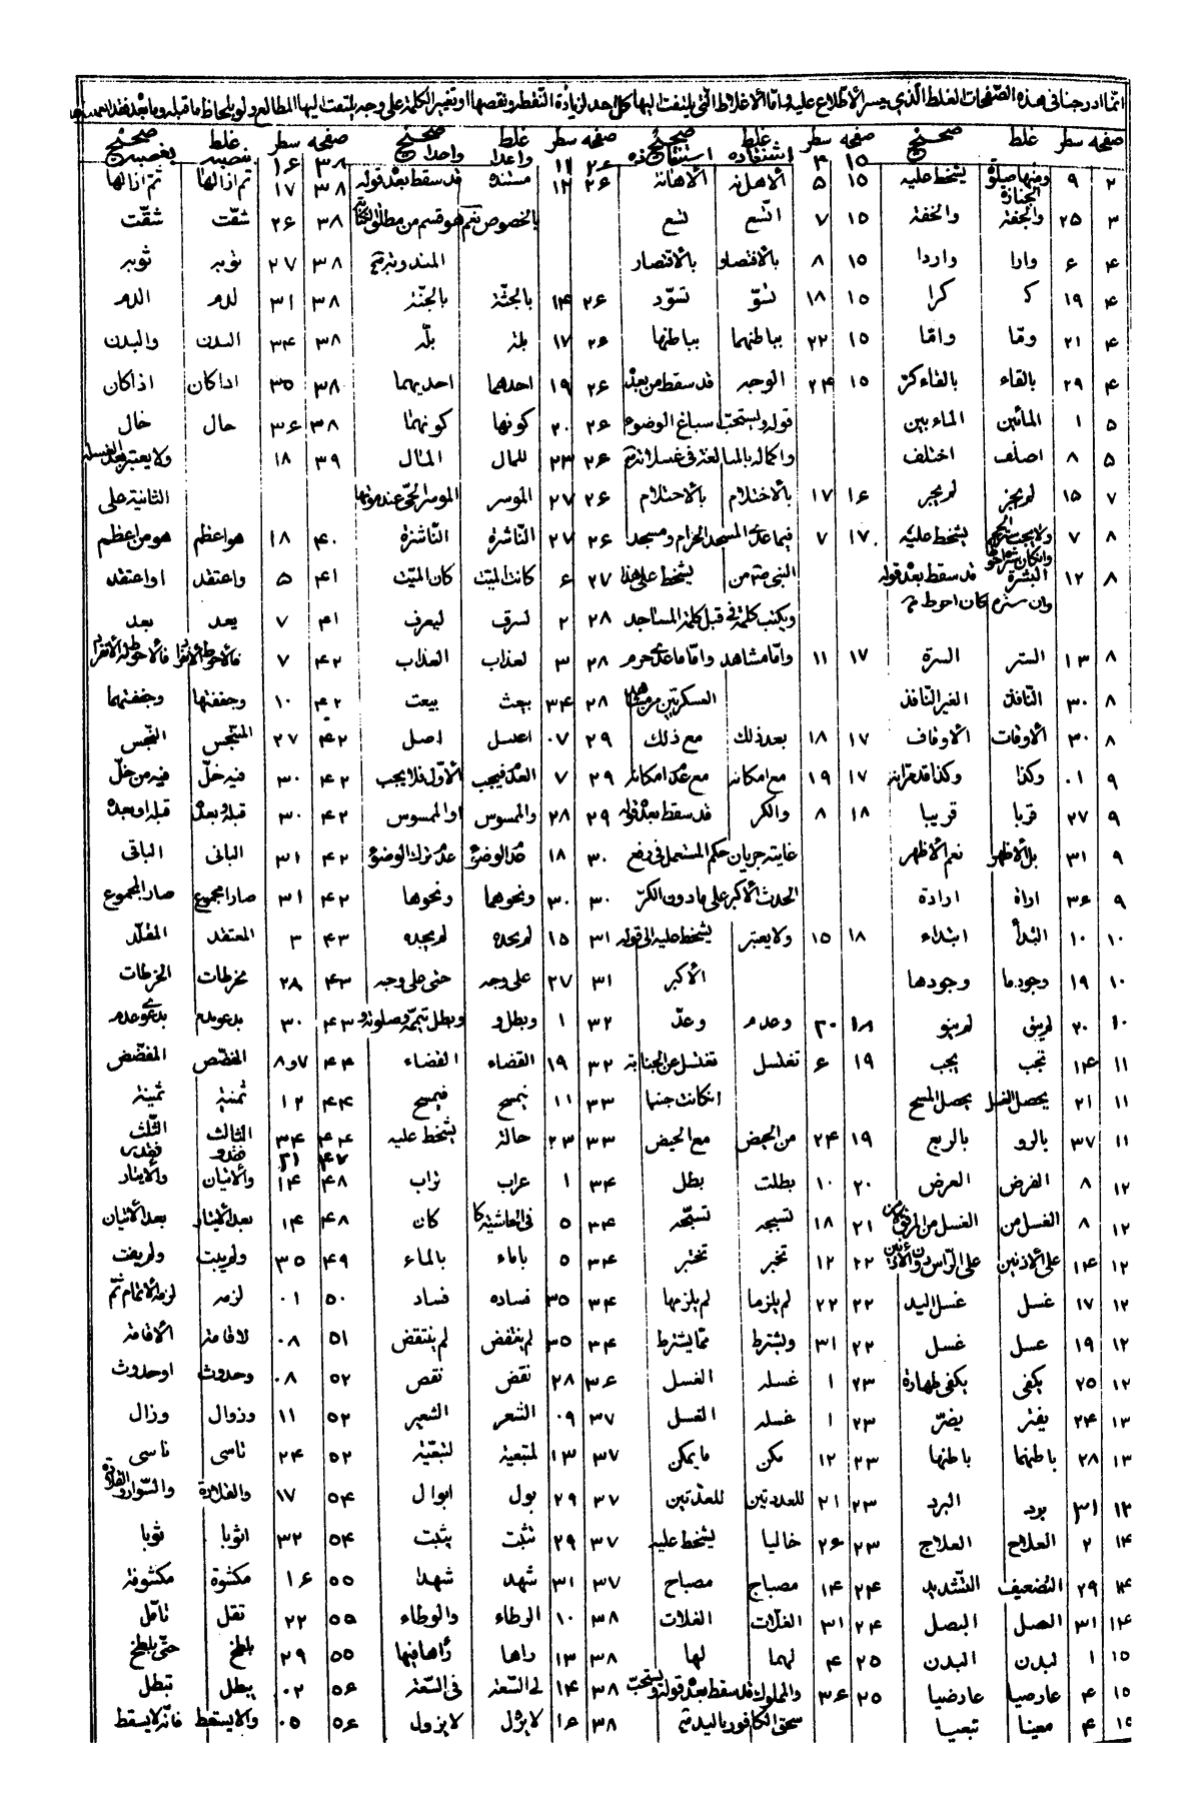 انما ادرجنا فی هذه الصفحات الغلط الذی یعسر الاطلاع علیه واما الاغلاط التی یلتفت الیها کل احد لزیادة النقط او نقصها او تغییر الکلمة علی وجه یلتفت الیها المطالع ولو بلحاظ ما قبله وما بعده فقد
صفحه سطر غلط صحیح صفحه سطر غلط صحیح صفحه سطر غلط صحیح صفحه سطر غلط صحیح
۱۵ ۳ اشتفاده استفاده ۲۶ ۱۱ واعدا واحدا ۳۸ ۱۶
۲ ۹ ومنها صلوة الجنازة یشخط علیه ۱۵ ۵ الاهلنه الاهانه ۲۶ ۱۲ مستنده قد سقط بعد قوله ۳۸ ۱۷ تم ازالها ثم ازالها
۳ ۲۵ والجفنه والخفنه ۱۵ ۷ اتسع تسع بالخصوص نعم هو قسم من مطلق ۳۸ ۲۶ شقت شقت
۴ ۶ وارا واردا ۱۵ ۸ بالاقتصاو بالاقتصار المندوبه ۳۸ ۲۷ نوبه ثوبه
۴ ۱۹ کر کرا ۱۵ ۱۸ تسو تسود ۲۶ ۱۴ بالجثة بالجنة ۳۸ ۳۱ لدم الدم
۴ ۲۱ وما واما ۱۵ ۲۲ بباطنهما بباطنها ۲۶ ۱۷ بلة بله ۳۸ ۳۴ البدن والبدن
۴ ۲۹ بالقاء بالفاء کر ۱۵ ۲۴ الوجه قد سقط من بعد ۲۶ ۱۹ احدهما احدیهما ۳۸ ۳۵ اداکان اذاکان
۵ ۱ المائین الماء بین قوله ویستحب سباغ الوضوء ۲۶ ۲۰ کونها کونهما ۳۸ ۳۶ حال خال
۵ ۸ اصلف اختلف واکماله بالمبالغة فی غسل ۲۶ ۲۳ للمال المال ۳۹ ۱۸ ولا یعتبر بعد الغسلة
۷ ۱۵ لم یجز لم یجر ۱۶ ۱۷ بالاختلام بالاحتلام ۲۶ ۲۷ الموسر الموسر الحی عند موتها الثانیة علی
۸ ۷ یشخط علیه ۱۷ ۷ فیما عدی المسجد الحرام ومسجد ۲۶ ۲۷ الناشرة الناشزة ۴۰ ۱۸ هو اعظم هو من اعظم
۸ ۱۲ البشرة قد سقط بعد قوله النبی من یشخط علی هذا ۲۷ ۶ کانت المیت کان المیت ۴۱ ۵ واعتقد او اعتقد
وان ستره کان احوط ویکتب کلمة فی قبل کلمة المساجد ۲۸ ۲ لسرف لیعرف ۴۱ ۷ یعد بعد
۸ ۱۳ الستر السرة ۱۷ ۱۱ واما مشاهد واما ماعدی حرم ۲۸ ۳ لعذاب العذاب ۴۲ ۷
۸ ۳۰ النافذ الغیر النافذ العسکریین ۲۸ ۳۴ بعث بیعت ۴۲ ۱۰ وجففتها وجففتهما
۸ ۳۰ الاوقات الاوقاف ۱۷ ۱۸ بعد ذلک مع ذلک ۲۹ ۰۷ اعسل اصل ۴۲ ۲۷ المتنجس النجس
۹ ۰۱ وکذا وکذا قد ۱۷ ۱۹ مع امکانه مع عدم امکانه ۲۹ ۷ العدد فیجب الاول فلا یجب ۴۲ ۳۰ فیه خل فیه من خل
۹ ۲۷ قربا قریبا ۱۸ ۸ والکر قد سقط بعد قوله ۲۹ ۲۸ والمسوس او الممسوس ۴۲ ۳۰ قبله وبعده قبله او بعده
۹ ۳۱ بل الاظهر نعم الاظهر غایته جریان حکم المستعمل فی رفع ۳۰ ۱۸ الوضوء عدد ترک الوضوء ۴۲ ۳۱ البانی الباقی
۹ ۳۶ اراة ارادة الحدث الاکبر علی ما دون الکر ۳۰ ۳۰ ونحوهما ونحوها ۴۲ ۳۱ صار امجموع صار المجموع
۱۰ ۱۰ البدأ ابتداء ۱۸ ۱۵ ولا یعتبر یشخط علیه الی قوله ۳۱ ۱۵ لم یحده لم یجده ۴۳ ۳ المعتقد المقلد
۱۰ ۱۹ وجود ما وجودها الاکبر ۳۱ ۲۷ علی وجه حتی علی وجه ۴۳ ۲۸ مخرطات الخرطات
۱۰ ۲۰ لم ینو ۱۸ ۳۰ وعدم وعد ۳۲ ۱ وبطل و وبطل تیممه وصلوته و ۴۳ ۳۰ بدعو بدم بدعوی عدم
۱۱ ۱۴ تجب یجب ۱۹ ۶ تغتسل تغتسل عن الجنابة ۳۲ ۱۹ القضاء الفضاء ۴۴ ۷و۸ المفضض
۱۱ ۲۱ یحصل الغسل یحصل المسح ان کانت جنبا ۳۳ ۱۱ یمسح فیمسح ۴۴ ۱۲ ثمنیه ثمینة
۱۱ ۳۷ بالرو بالربع ۱۹ ۲۴ من الحیض مع الحیض ۳۳ ۲۳ حالة یشخط علیه ۴۴ ۳۴ الثالث الثلث
۴۷ ۲۱
۱۲ ۸ الفرض العرض ۲۰ ۱۰ بطلت بطل ۳۴ ۱ عراب تراب ۴۸ ۱۴ والاتیان والایتار
۱۲ ۸ الغسل من الغسل من المرفق ۲۱ ۱۸ تسبیحه تسبحه ۳۴ ۵ فی الحاشیة کا کان ۴۸ ۱۴ بعد الایتار بعد الاتیان
۱۲ ۱۴ علی الاذنین علی الراس دون الاذنین ۲۲ ۱۲ تخبر تختبر ۳۴ ۵ باماء بالماء ۴۹ ۳۵
۱۲ ۱۷ غسل غسل الید ۲۲ ۲۲ لم یلزما لم یلزمها ۳۴ ۳۵ فساده فساد ۵۰ ۰۱ لزمه لزمه الاتمام ثم
۱۲ ۱۹ عسل غسل ۲۲ ۳۱ ویشترط مما یشترط ۳۴ ۳۵ لم ینتفض لم ینتقض ۵۱ ۰۸ لاقامة الاقامة
۱۲ ۲۵ یکفی یکفی طهارة ۲۳ ۱ غسله الغسل ۳۶ ۲۸ نقض نقص ۵۲ ۰۸ وحدوث او حدوث
۱۳ ۲۴ یفتر یضر ۲۳ ۱ غسله الغسل ۳۷ ۰۹ الشعر الشعیر ۵۲ ۱۱ وزوال وزال
۱۳ ۲۸ باطنهما باطنها ۲۳ ۱۲ مکن ما یمکن ۳۷ ۱۳ لمتبعیة لتبعیة ۵۲ ۲۴ ناسی ناسی
۱۳ ۳۱ برد البرد ۲۳ ۲۱ للعددتین للعذرتین ۳۷ ۲۹ بول ابوال ۵۴ ۱۷ والقلادة والسوار والقلادة
۱۴ ۲ العلاح العلاج ۲۳ ۲۶ خالیا یشخط علیه ۳۷ ۲۹ تثبت یثبت ۵۴ ۳۲ اثوبا ثوبا
۱۴ ۲۹ التضعیف التشدید ۲۴ ۱۴ مصباج مصباح ۳۷ ۳۱ شهد شهدا ۵۵ ۱۶ مکشوة مکشوفة
۱۴ ۳۱ الصل البصل ۲۴ ۳۱ الفلات الفلات ۳۸ ۱۰ الرطاء والوطاء ۵۵ ۲۲ تقل تامل
۱۵ ۱ لبدن البدن ۲۵ ۴ لهما لها ۳۸ ۱۳ راها رأها فیها ۵۵ ۲۹ بلطخ حتی یلطخ
۱۵ ۴ عارصیا عارضیا ۲۵ ۳۶ والمملوک قد سقط بعد قوله ویستحب ۳۸ ۱۴ لی السعة فی السعة ۵۶ ۰۲ یبطل تبطل
۱۵ ۴ معینا تبعیا سحق الکافور بالید ۳۸ ۱۶ لا یزل لا یزول ۵۶ ۰۵ والا یسقط فانه لا یسقط